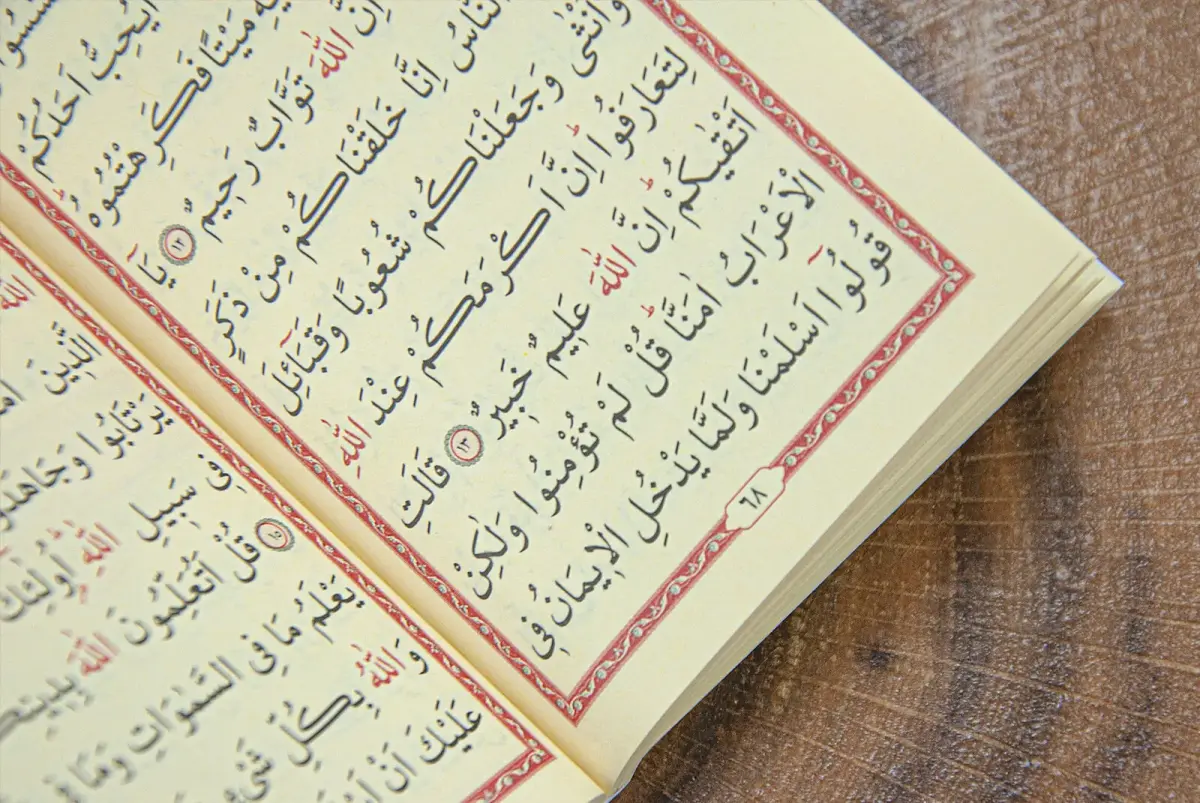 اَيُحِبُّ اَحَدُكُمْ
مَيْتًا فَكَرِهْتُمُوهُۜ
اِنَّ اللّٰهَ تَوَّابٌ رَح۪يمٌ ﴿١٢﴾ يَٓا
النَّاسُ اِنَّا خَلَقْنَاكُمْ مِنْ ذَكَرٍ
وَاُنْثٰى وَجَعَلْنَاكُمْ شُعُوبًا وَقَبَٓائِلَ
لِتَعَارَفُواۜ اِنَّ اَكْرَمَكُمْ عِنْدَ اللّٰهِ
اَتْقٰيكُمْۜ اِنَّ اللّٰهَ عَل۪يمٌ خَب۪يرٌ ﴿١٣﴾ قَالَتِ
الْاَعْرَابُ اٰمَنَّاۜ قُلْ لَمْ تُؤْمِنُوا وَلٰكِنْ
قُولُٓوا اَسْلَمْنَا وَلَمَّا يَدْخُلِ الْا۪يمَانُ ف۪ي
٦٨
اللّٰهَ
الَّذ۪ينَ
يَرْتَابُوا وَجَاهَدُ
ف۪ي سَب۪يلِ اللّٰهِۜ اُو۬لٰٓئِكَ
﴿١٥﴾ قُلْ اَتُعَلِّمُونَ اللّٰهَ
يَعْلَمُ مَا فِي السَّمٰوَاتِ وَمَا
وَاللّٰهُ بِكُلِّ شَيْءٍ
عَلَيْكَ اَنْ